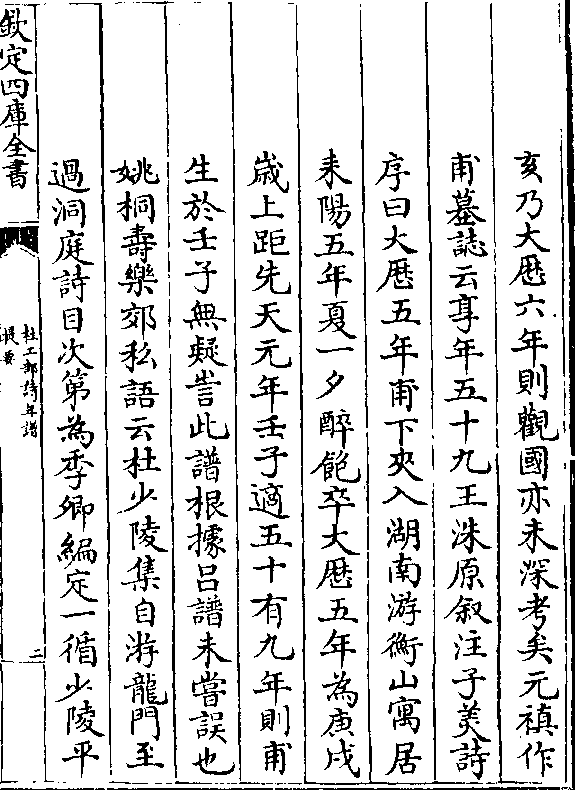 亥乃大厯六年則觀國亦未深考矣元禛作
甫墓誌云享年五十九王洙原叙注子美詩
序曰大厯五年甫下夾入湖南游衡山寓居
耒陽五年夏一夕醉飽卒大厯五年為庚戌
歲上距先天元年壬子適五十有九年則甫
生於壬子無疑訔此譜根據吕譜未嘗誤也
姚桐壽樂郊私語云杜少陵集自游龍門至
過洞庭詩目次第為季卿編定一循少陵平
欽定四庫全書
杜工部詩年譜
提要
二